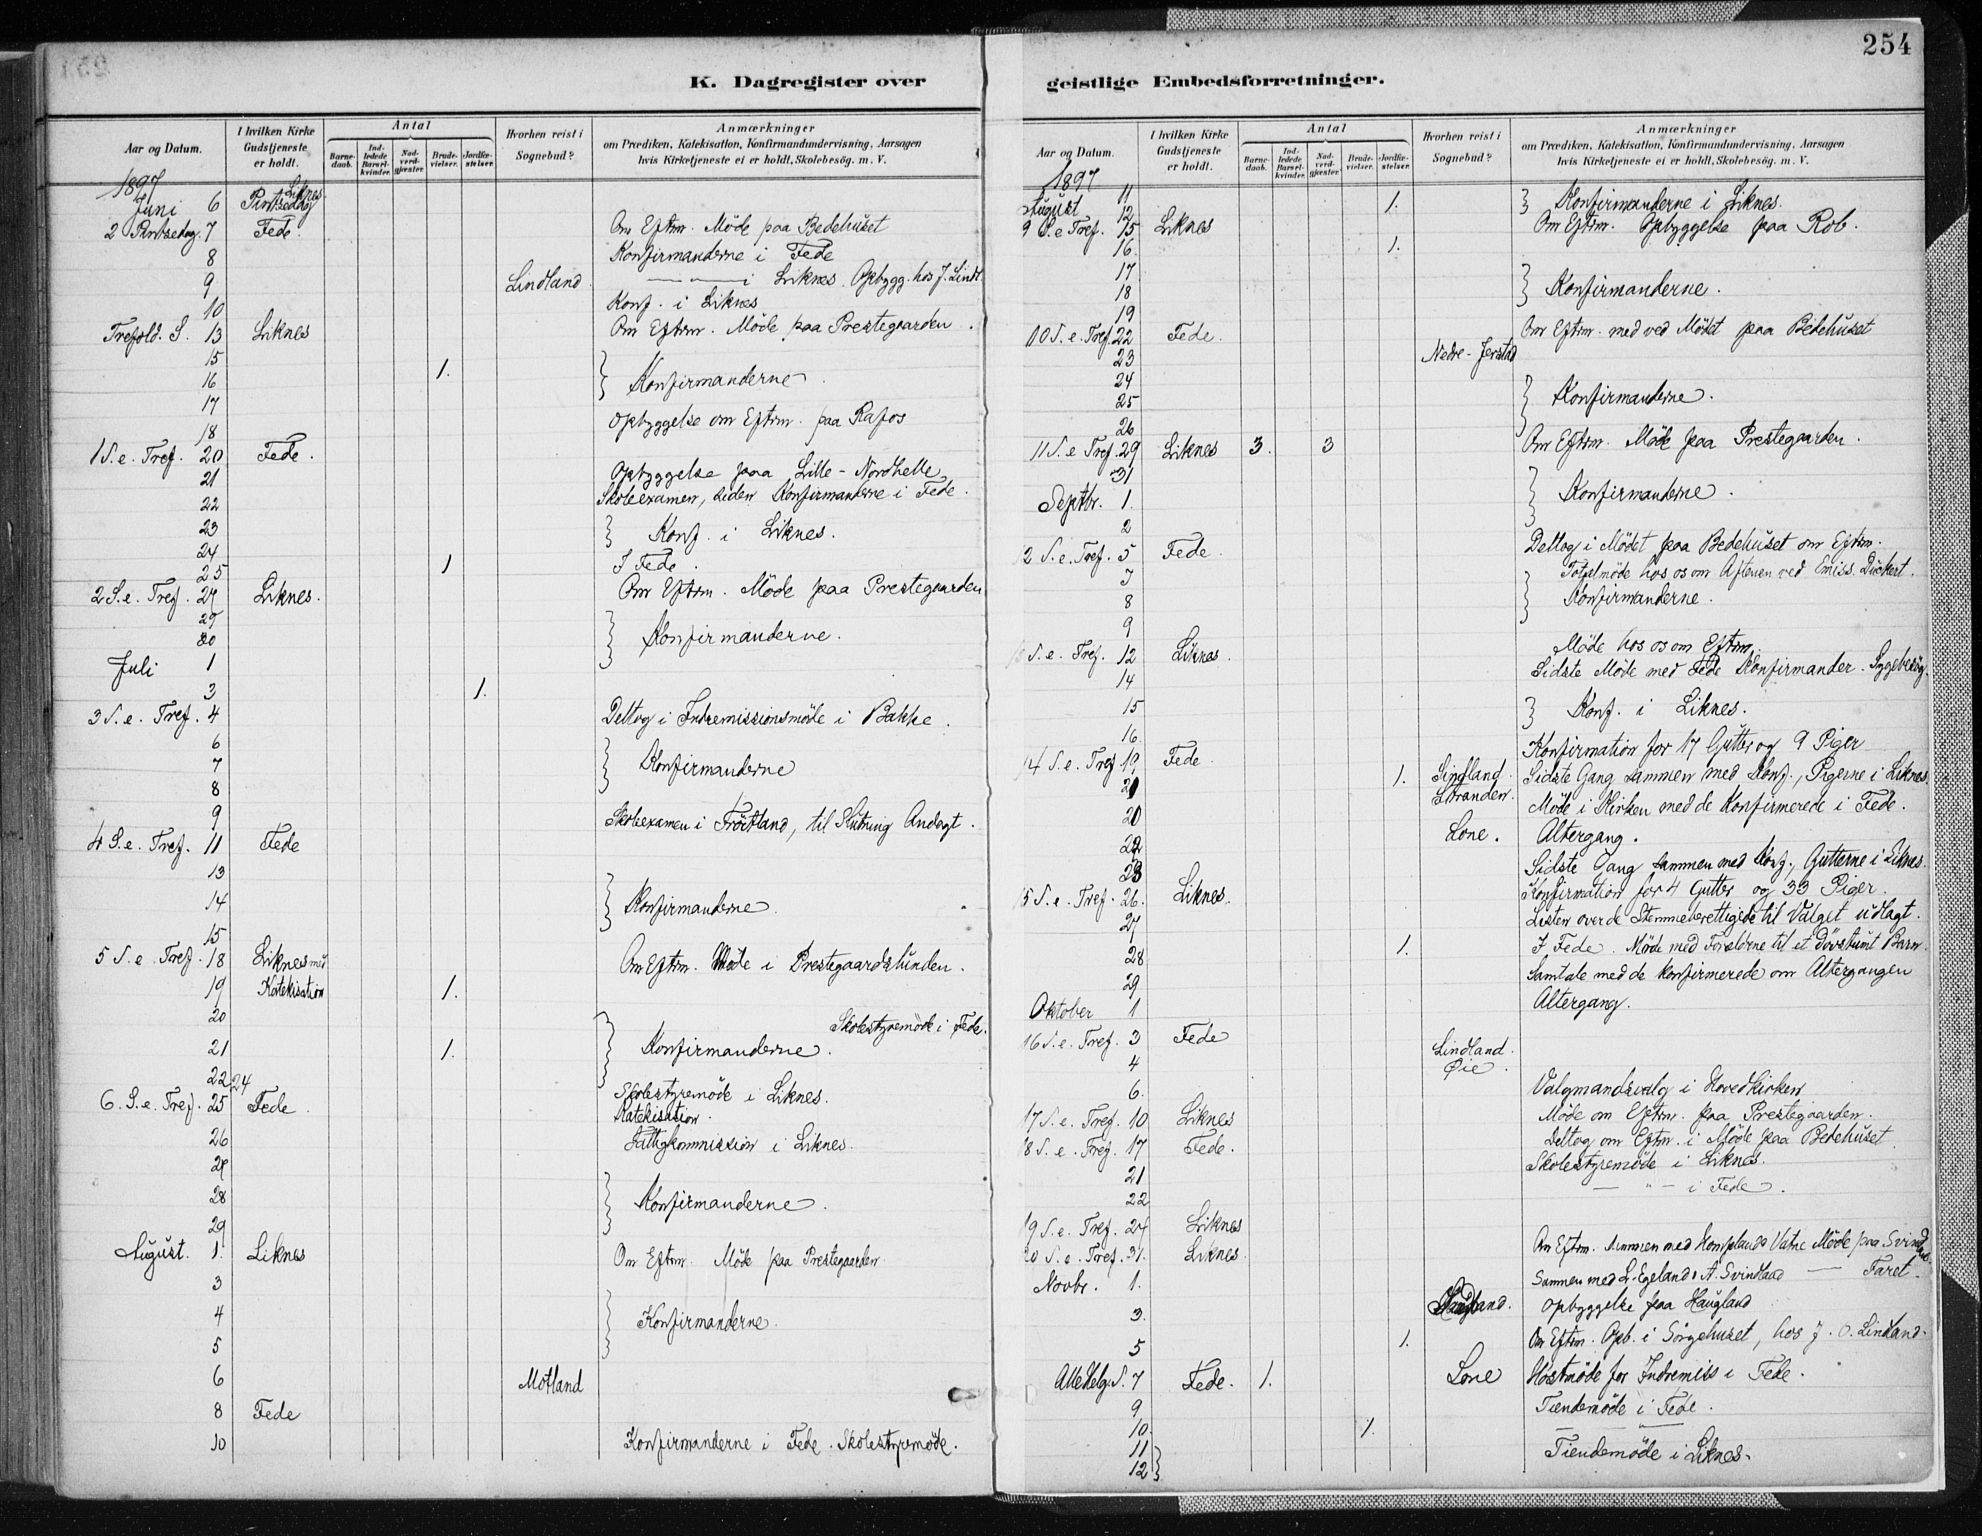 254
K. Dagregister over
Aar og Datum.
I hvilken Kirke Gudstjeneste er holdt.
Antal
Barnedaab.
Indledede Barselkvinder.
Nadverdgjæster.
Brudevielser.
Jordfæstelser.
Hvorhen reist i Sognebud?
Anmærkninger
om Prædiken, Katekisation, Konfirmandundervisning, Aarsagen
hvis Kirketjeneste ei er holdt, Skolebesög. m. V.
1897
Juni 6 Liknes
Pintsedag
2 Pintsedag. 7 Fede. Om Eftrm. Møde paa Bedehuset
8 Konfirmanderne i Fede
9 Lindland — " — i Liknes. Opbygg. hos J. Lindl.
10 Konf. i Liknes
Trefold. S. 13 Liknes Om Eftrm. Møde paa Prestegaarden.
15 1.
16 Konfirmanderne
17
18 Opbyggelse om Eftrm. paa Rafos
1 S. e. Tref. 20 Fede.
21 Opbyggelse paa Lille-Nordhelle
22 Skoleexamen, siden Konfirmanderne i Fede.
23 Konf. i Liknes.
24 1
25 I Fede.
2 S. e. Tref. 27 Liknes. Om Eftrm. Møde paa Prestegaarden
29
30 Konfirmanderne.
Juli 1
3 1.
3 S. e. Tref. 4 Deltog i Indremissionsmøde i Bakke.
6
7 Konfirmanderne
8
9 Skoleexamen i Trötland, til Slutning Andagt.
4 S. e. Tref. 11 Fede
13
14 Konfirmanderne
15
5 S. e. Tref. 18 Liknes med Om Eftrm. Møde i Prestegaardslunden.
19 Katekisation 1.
20 Skolestyremøde i Fede.
21 1. Konfirmanderne.
22 24 Skolestyremøde i Liknes.
6. S. e. Tref. 25 Fede. Katekisation.
26 Fattigkommission i Liknes.
27
28 Konfirmanderne.
29
August. 1. Liknes Om Eftrm. Møde paa Prestegaarden
3
4 Konfirmanderne.
5
6 Motland
8 Fede
10 Konfirmanderne i Fede. Skolestyremøde.
geistlige Embedsforretninger.
Aar og Datum.
I hvilken Kirke Gudstjeneste er holdt.
Antal
Barnedaab.
Indledede Barselkvinder.
Nadverdgjæster.
Brudevielser.
Jordfæstelser.
Hvorhen reist i Sognebud?
Anmærkninger
om Prædiken, Katekisation, Konfirmandundervisning, Aarsagen
hvis Kirketjeneste ei er holdt, Skolebesög. m. V.
1897
11
August 12 1. Konfirmanderne i Liknes.
9 S. e Tref. 15 Liknes Om Eftrm. Opbyggelse paa Rob.
16. 1.
17
18 Konfirmanderne.
19
10 S. e. Tref. 22 Fede. Om Eftrm. med ved Mødet paa Bedehuset
23 Nedre-Jerstad
24
25 Konfirmanderne.
26
11 S. e Tref. 29 Liknes 3. 3 Om Eftrm. Møde paa Prestegaarden.
31
Septbr. 1. Konfirmanderne.
2
12 S. e. Tref. 5 Fede. Deltog i Mødet paa Bedehuset om Eftrm.
7 hos os om Aftenen ved Emiss.
8 Konfirmanderne.
9
S. e. Tref. 12 Liknes. Møde hos os om Eftrm.
14 Sidste Møde med Fede Konfirmander. Sygebesög.
15 Konf. i Liknes.
16.
14 S. e. Tref 19 Fede. Konfirmation for 17 Gutter og 9 Piger
21 1. Lindland. Sidste Gang sammen med Konf., Pigerne i Liknes.
20 Stranden. Møde i Kirken med de Konfirmerede i Fede.
22 Lone. Altergang.
23 Sidste Gang sammen med Konf., Gutterne i Liknes.
15 S. e. Tref. 26. Liknes. Konfirmation for 4 Gutter og 33 Piger.
27 Listen over de Stemmeberettigede til Valget udlagt.
28 1. I Fede. Møde med Forældrne til et døvstumt Barn.
29 Samtale med de konfirmerede om Altergangen
Oktober 1 Altergang.
16 S. e. Tref. 3 Fede Lindland.
4 Øie.
6. Valgmandsvalg i Hovedkirken
17 S. e. Tref. 10 Liknes Møde om Eftrm. paa Prestegaarden.
18 S. e. Tref. 17 Fede. Deltog om Eftrm. i Møde paa Bedehuset.
21 Skolestyremøde i Liknes.
22 — " — i Fede.
19 S. e. Tref. 24 Liknes
20 S. e. Tref. 31. Liknes Om Eftrm. sammen med Vatne Møde paa Svindland.
Novbr. 1. Sammen med L. Egeland & A. Svindland — Faret.
3. Haugland. Opbyggelse paa Haugland
5 1. Om Eftrm. Opb. i Sørgehuset, hos J. O. Lindland.
Alle Helg. S. 7 Fede. 1. Lone Høstmøde for Indremiss i Fede.
9 Tiendemøde i Fede.
10. 1. —
11
12 Tiendemøde i Liknes.